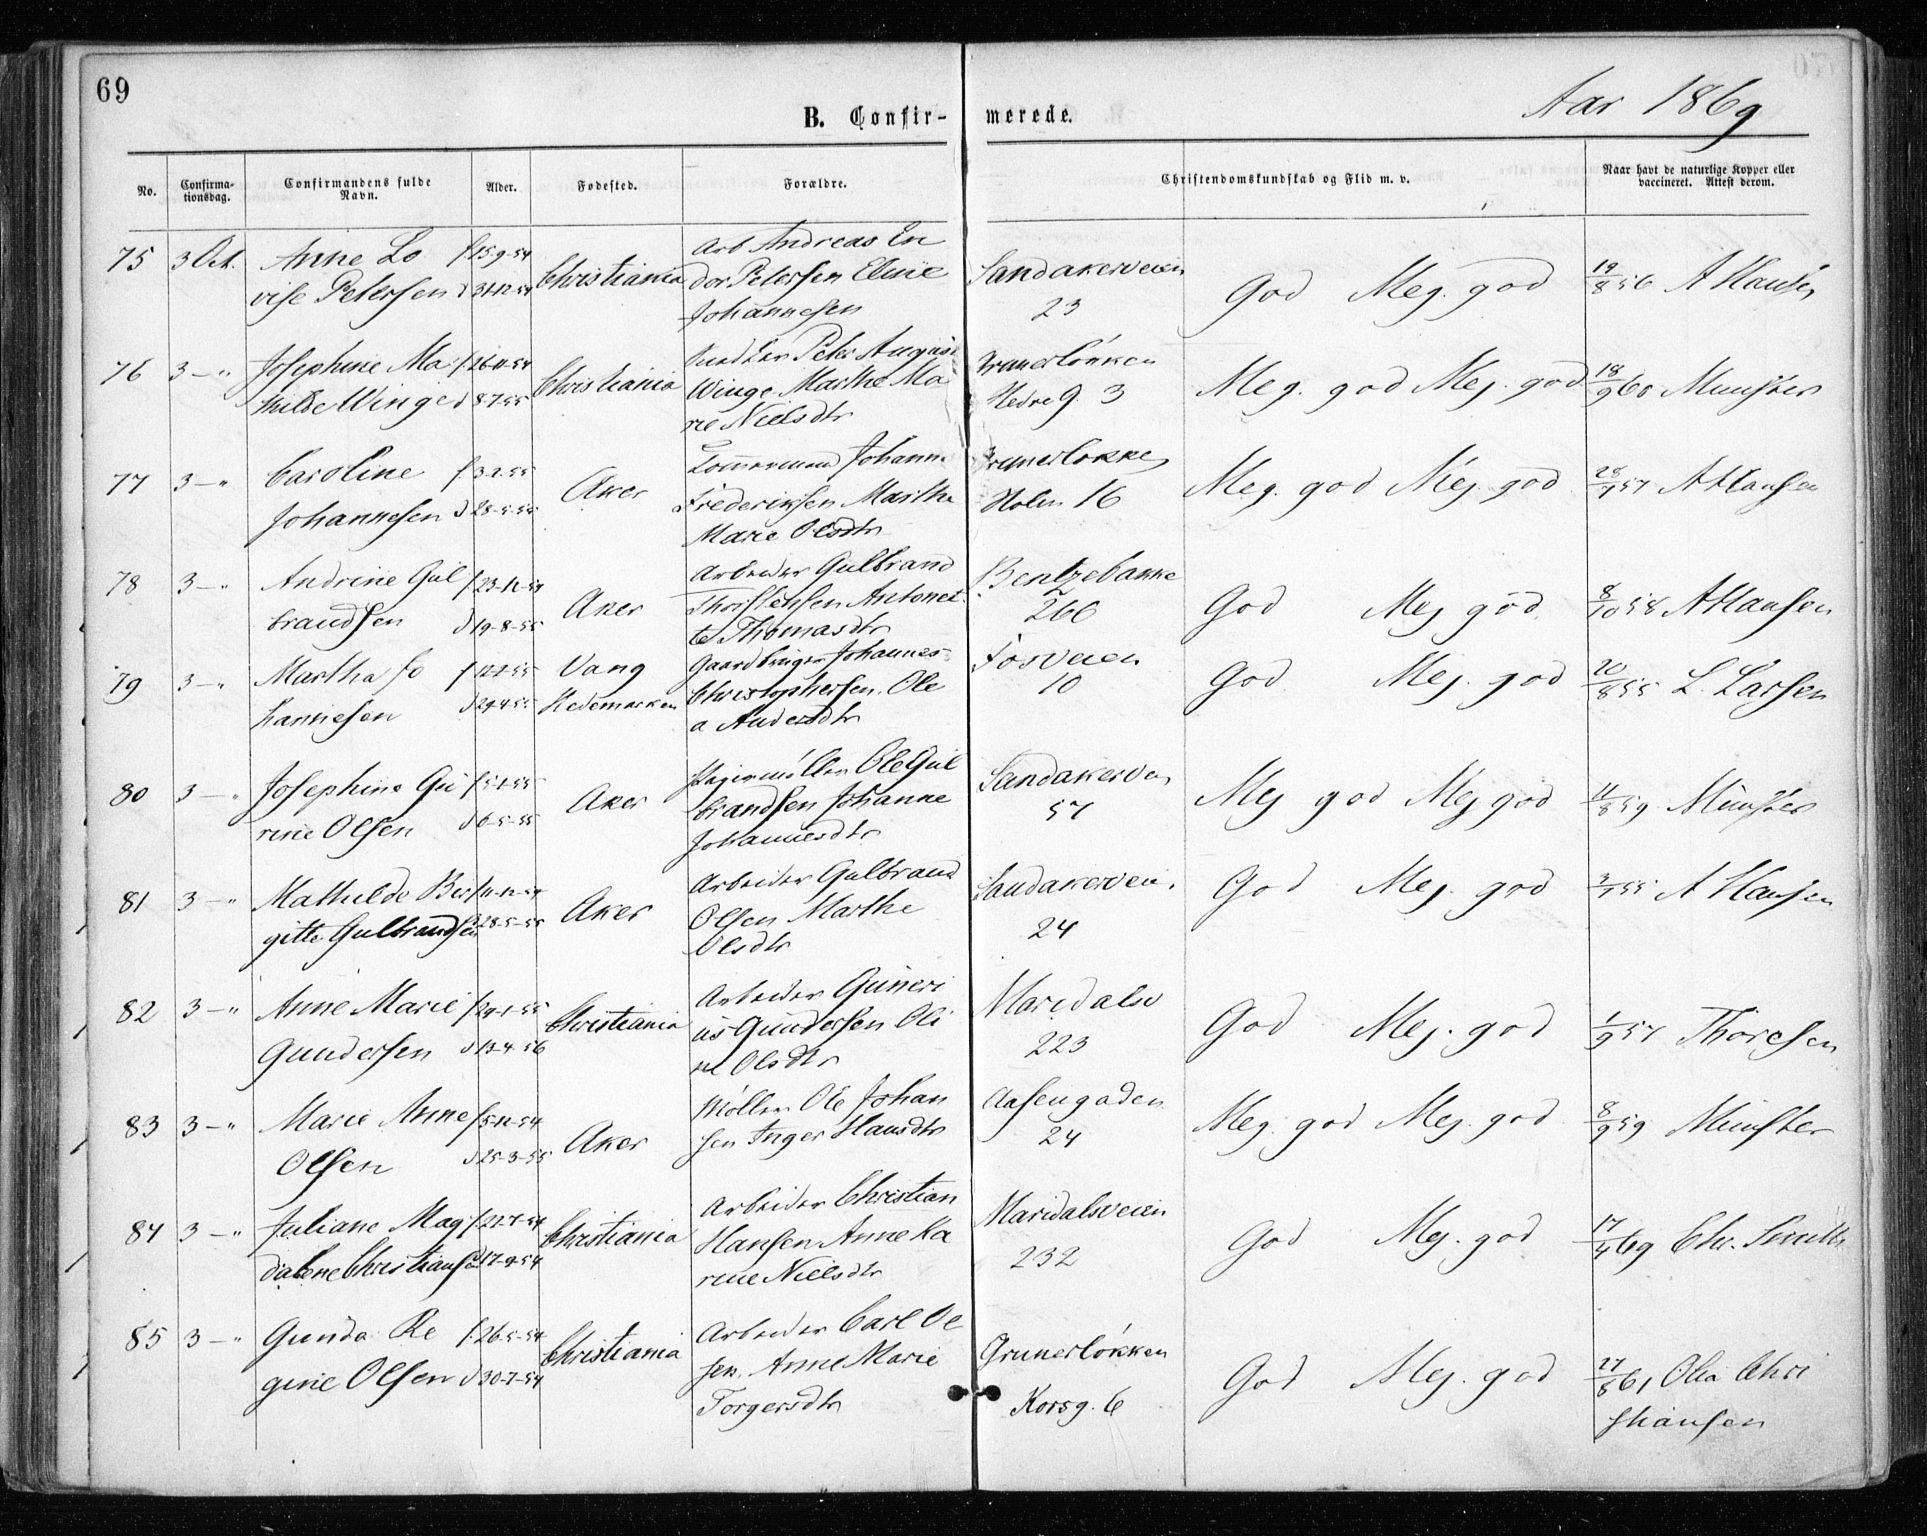 69
B. Confir-
merede.
Aar 1869
No.
Confirma-
tionsdag.
Confirmandens fulde
Navn.
Alder.
Fødested.
Forældre.
Christendomskundskab og Flid m. v.
Naar havt de naturlige Kopper eller
vaccineret. Attest derom.
75 3 Oct. Anne Lo f 15-9-54 Christiania Arb Andreas En Sandakerveien God Meg. god 19/8 56 A Hansen
vise Petersen d 31-12-54 dor Petersen Eline 23
Johannesen
76 3 — " Josephine Ma f 26-11-54 Christiania Peter August Grunerløkken Meg. god Meg. god 18/9 60 Munster
thilde Winge d 8-7-55 Winge Marthe Ma Nedre G. 3
rie Nielsdtr
77 3 — " Caroline f 3-2-55 Aker Tømmermand Johann Grunerløkken Meg. god Meg. god 57 A Hansen
Johannesen d 28-5-55 Frederiksen Marthe Holm 16
Marie Olsdtr
78 3 — " Andrine Gul f 23-12-54 Aker Arbeider Gulbrand Bentzebakke God Meg god 8/10 58 A Hansen
brandsen d 19-8-55 Thorstensen Antonet 266
te Thomasdtr
79 3 — " Martha Jo Vang Gaardbruger Johannes Fosveien God Meg. god 20/8 55 L. Larsen
hannesen Hedemarken Christophersen. Ole 10
a Andersdtr
80 3 — " Josephine Gu f 5-1-55 Aker Papirmøller Ole Gul Sandakervei Meg god Meg god 11/8 59 Münster
rine Olsen d 6-5-55 brandsen Johanne 57
Johannesdtr
81 3 — " Mathilde Bir f 11-12-54 Aker Arbeider Gulbrand Sandakerveien God Meg. god 55 A Hansen
gitte Gulbrandsen 28-5-55 Olsen Marthe 24
Olsdtr
82 3 — " Anne Marie f 29-1-55 Christiania Arbeider Guneri Maridalsv God Meg. god 1/9 57 Thoresen
Gundersen d 13-4-56 us Gundersen Oli 223
ne Olsdtr
83 3 — " Marie Anne f 5-12-54 Aker Møller Ole Johan Aasengaden Meg. god Meg. god 8/9 59 Münster
Olsen d 25-3-55 sen Inger Hansdtr 24
84 3 — " Juliane Mag f 22-7-54 Christiania Arbeider Christian Maridalsveien God Meg. god 17/4 69 Chr. Smith
dalene Christiansen 17-9-54 Hansen Anne Ka 232
rine Nielsdtr
85 3 — " Gunda Re f. 26-5-54 Christiania Arbeider Carl Ol Grunerløkken God Meg. god 27/8 61 Olea Chri
gine Olsen d 30-7-54 sen. Anne Marie Korsg. 6 stiansen
Torgersdtr